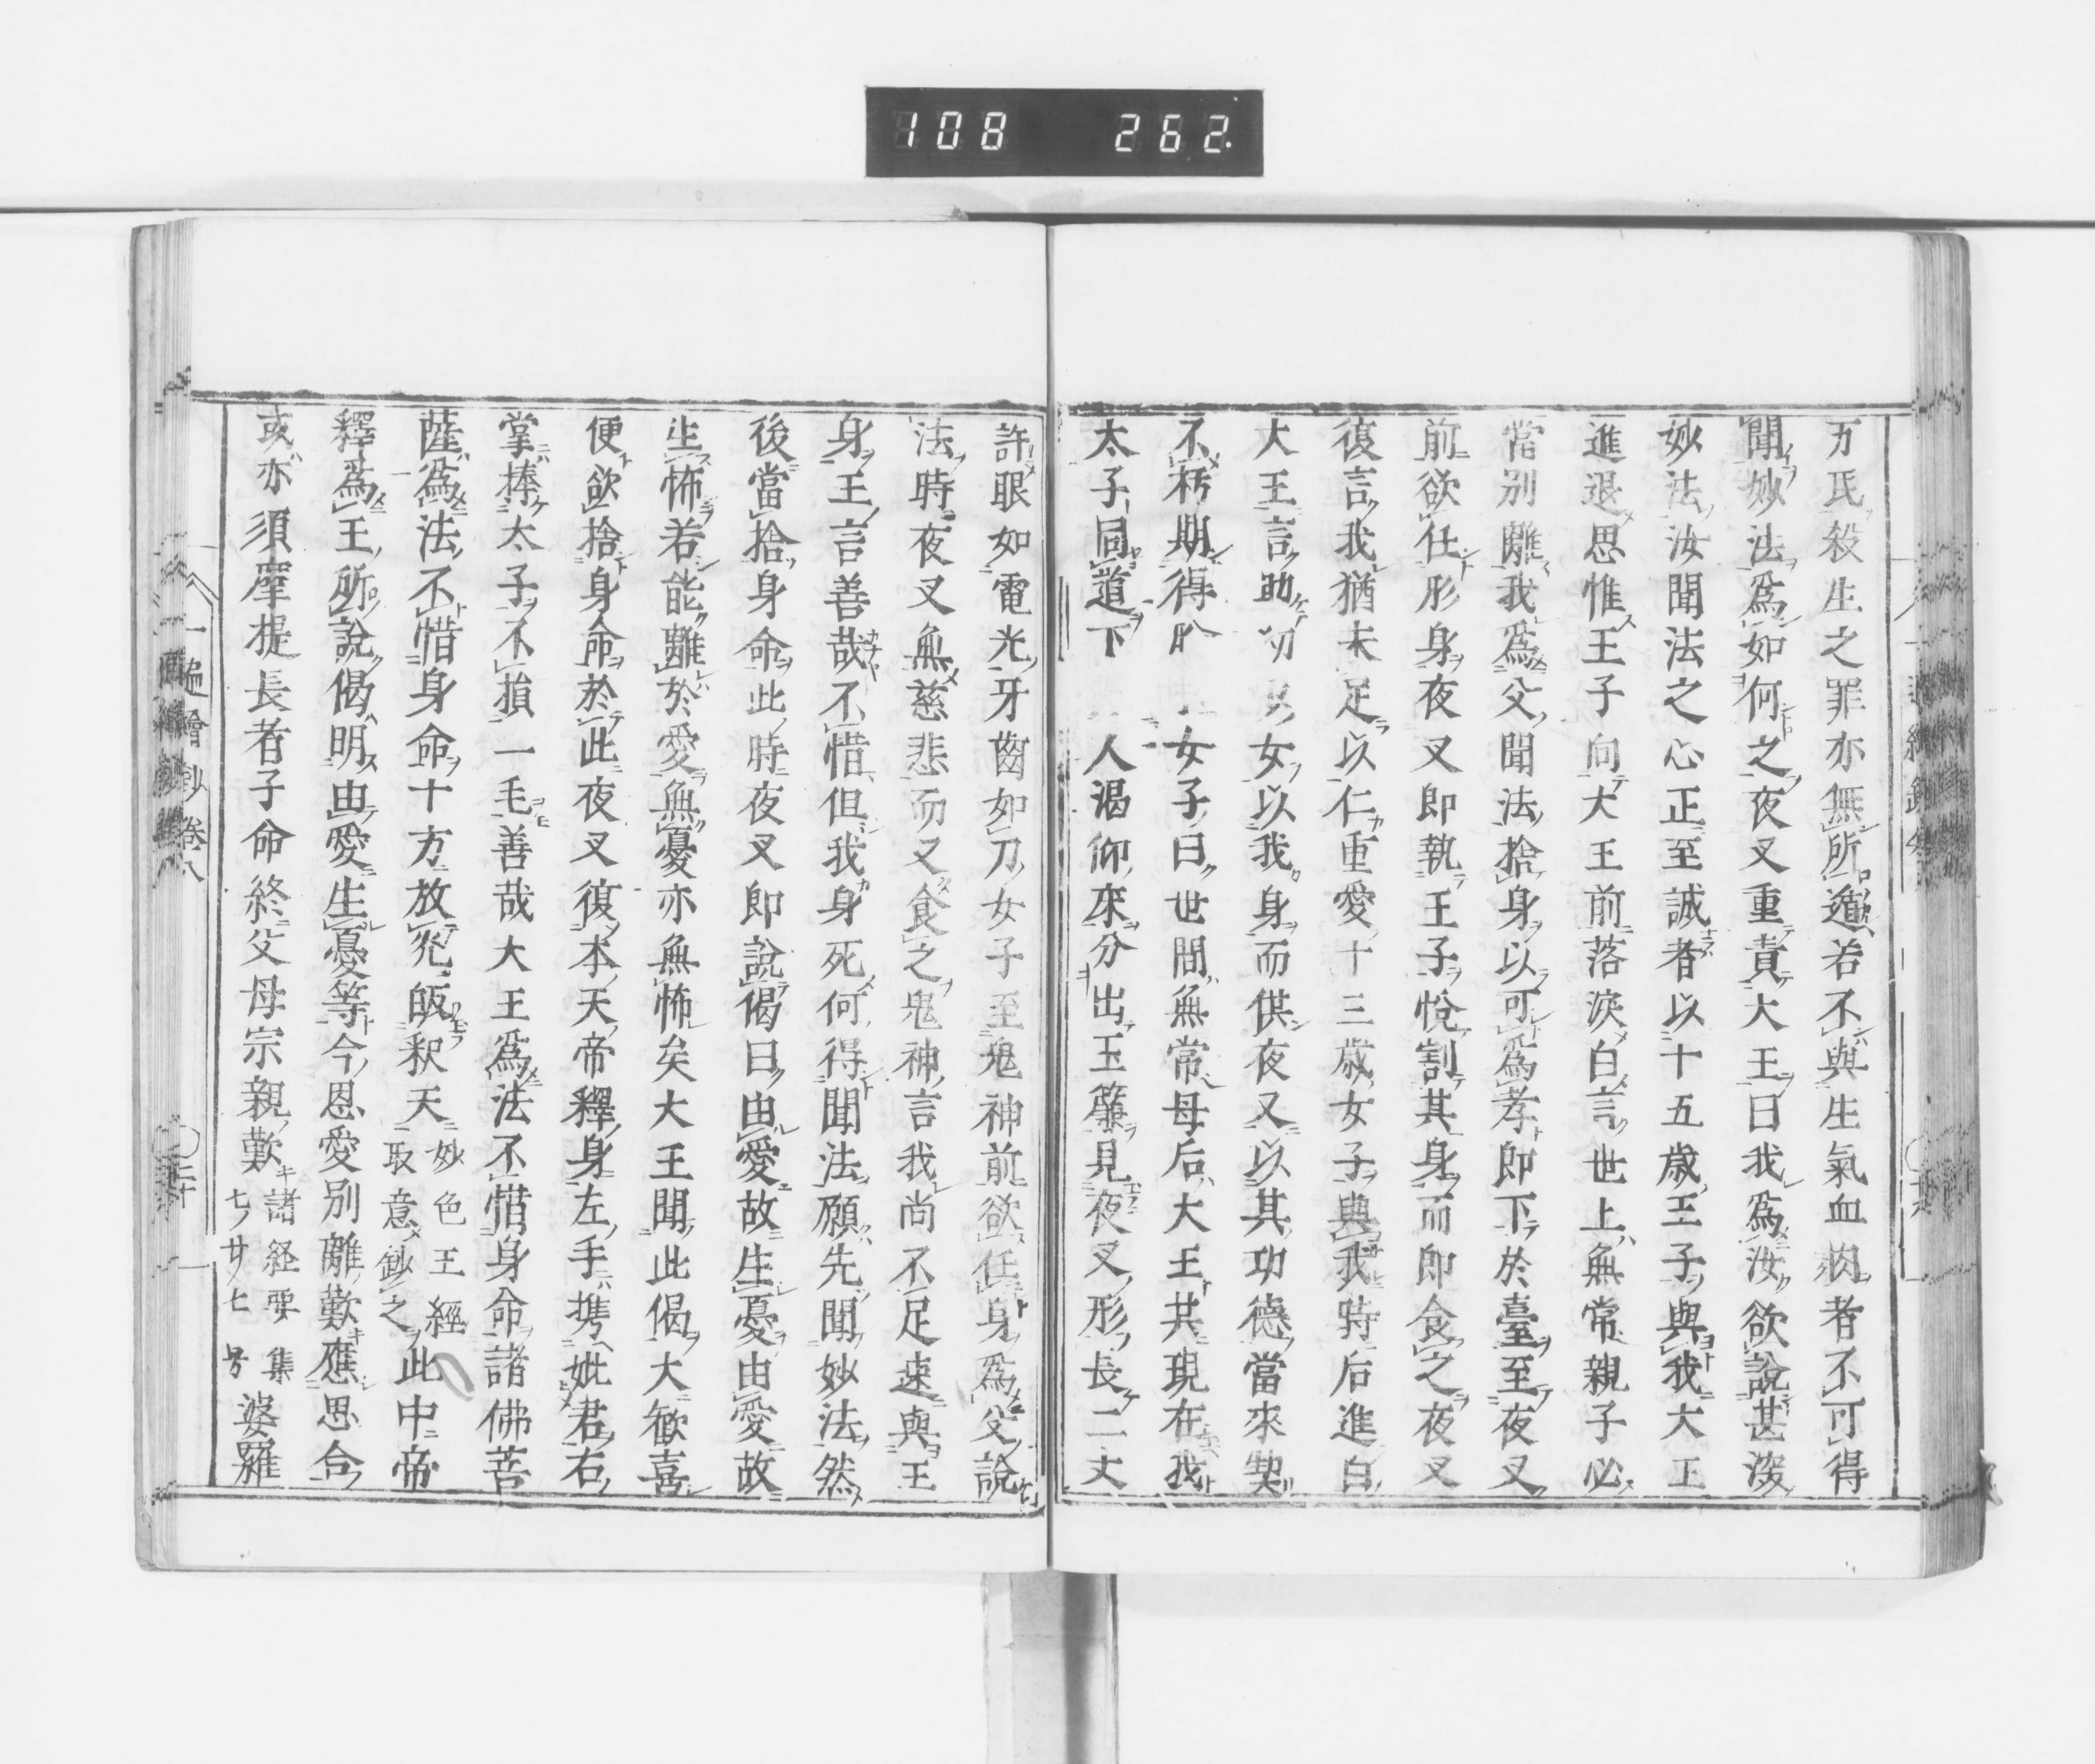 108 262.
万民殺生之罪亦無所遁若不與生氣血肉者不可得
聞妙法為如何之夜叉重責大王曰我為汝欲說甚深
妙法汝聞法之心正至誠者以十五歳王子與我大王
進退思惟王子向大王前落淚白言世上無常親子必
當別離我為父聞法捨身以可為孝即下於臺至夜叉
前欲任形身夜叉即執王子悅割其身而即食之夜叉
復言我猶未足以仁重愛十三歳女子與我時后進白
大王言助幼女以我身而供夜叉以其功德當來契
不朽期得女子曰世間無常母后大王共現在我
太子同道下人渴仰來分出玉簾見夜叉形長二丈
許眼如電光牙齒如刀女子至鬼神前欲任身為父說
法時夜叉無慈悲而又食之鬼神言我尚不足速與王
身王言善哉不惜但我身死何得聞法願先聞妙法然
後當捨身命此時夜叉即說偈曰由愛故生憂由愛故
生怖若能離於愛無憂亦無怖矣大王聞此偈大歡喜
便欲捨身命於此夜叉復本天帝釋身左手携妣君右
掌捧太子不損一毛善哉大王為法不惜身命諸佛菩
薩為法不惜身命十方放光皈釈天妙色王經取意鈔之此中帝
釋為王所說偈明由愛生憂等今恩愛別離歎應思合
或亦須摩提長者子命終父母宗親歎諸経要集七ノ廿ノ七号婆羅
一遍繪鈔卷八